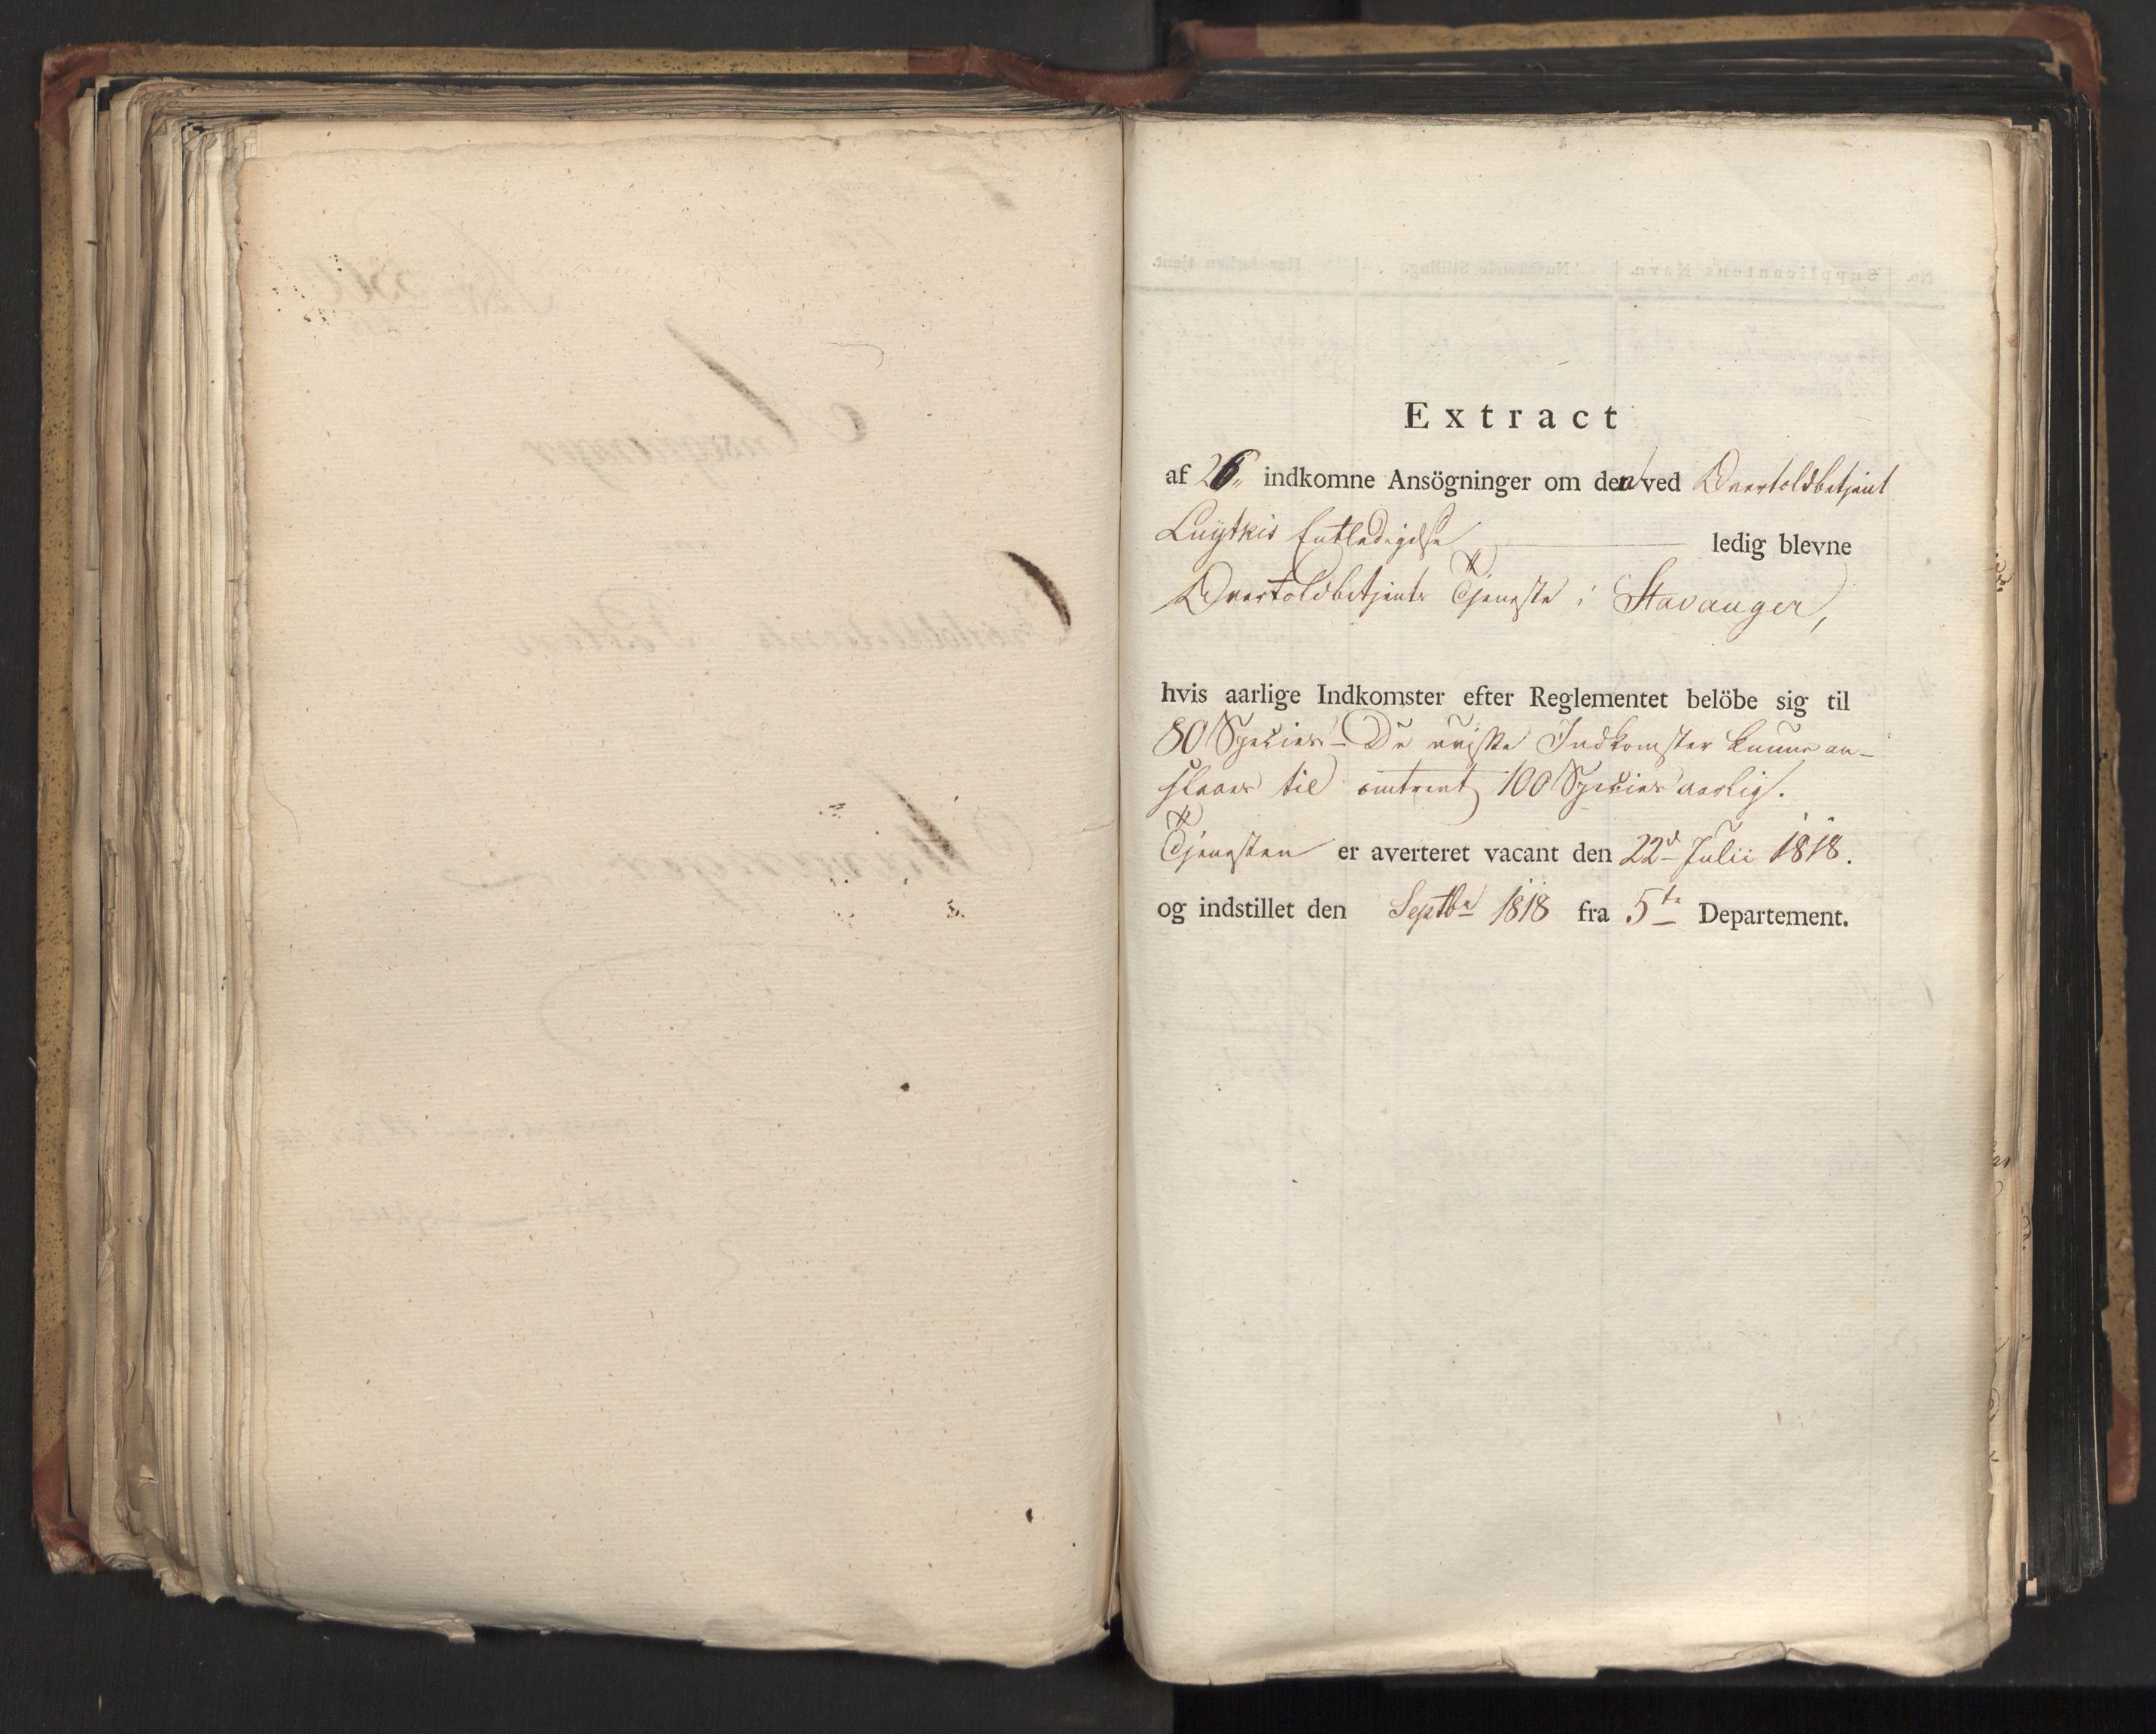 Extract
af 26 indkomne Ansögninger om den ved Overtoldbetjent
Luytkis Entledigelse ledig blevne
Overtoldbetjents Tjeneste i Stavanger,
hvis aarlige Indkomster efter Reglementet belöbe sig til
80 Species - De visse Indkomster kunne an-
slaaes til omtrent 100 Species aarlig.
Tjenesten er averteret vacant den 22d Julii 1818.
og indstillet den Septbr 1818 fra 5te Departement.